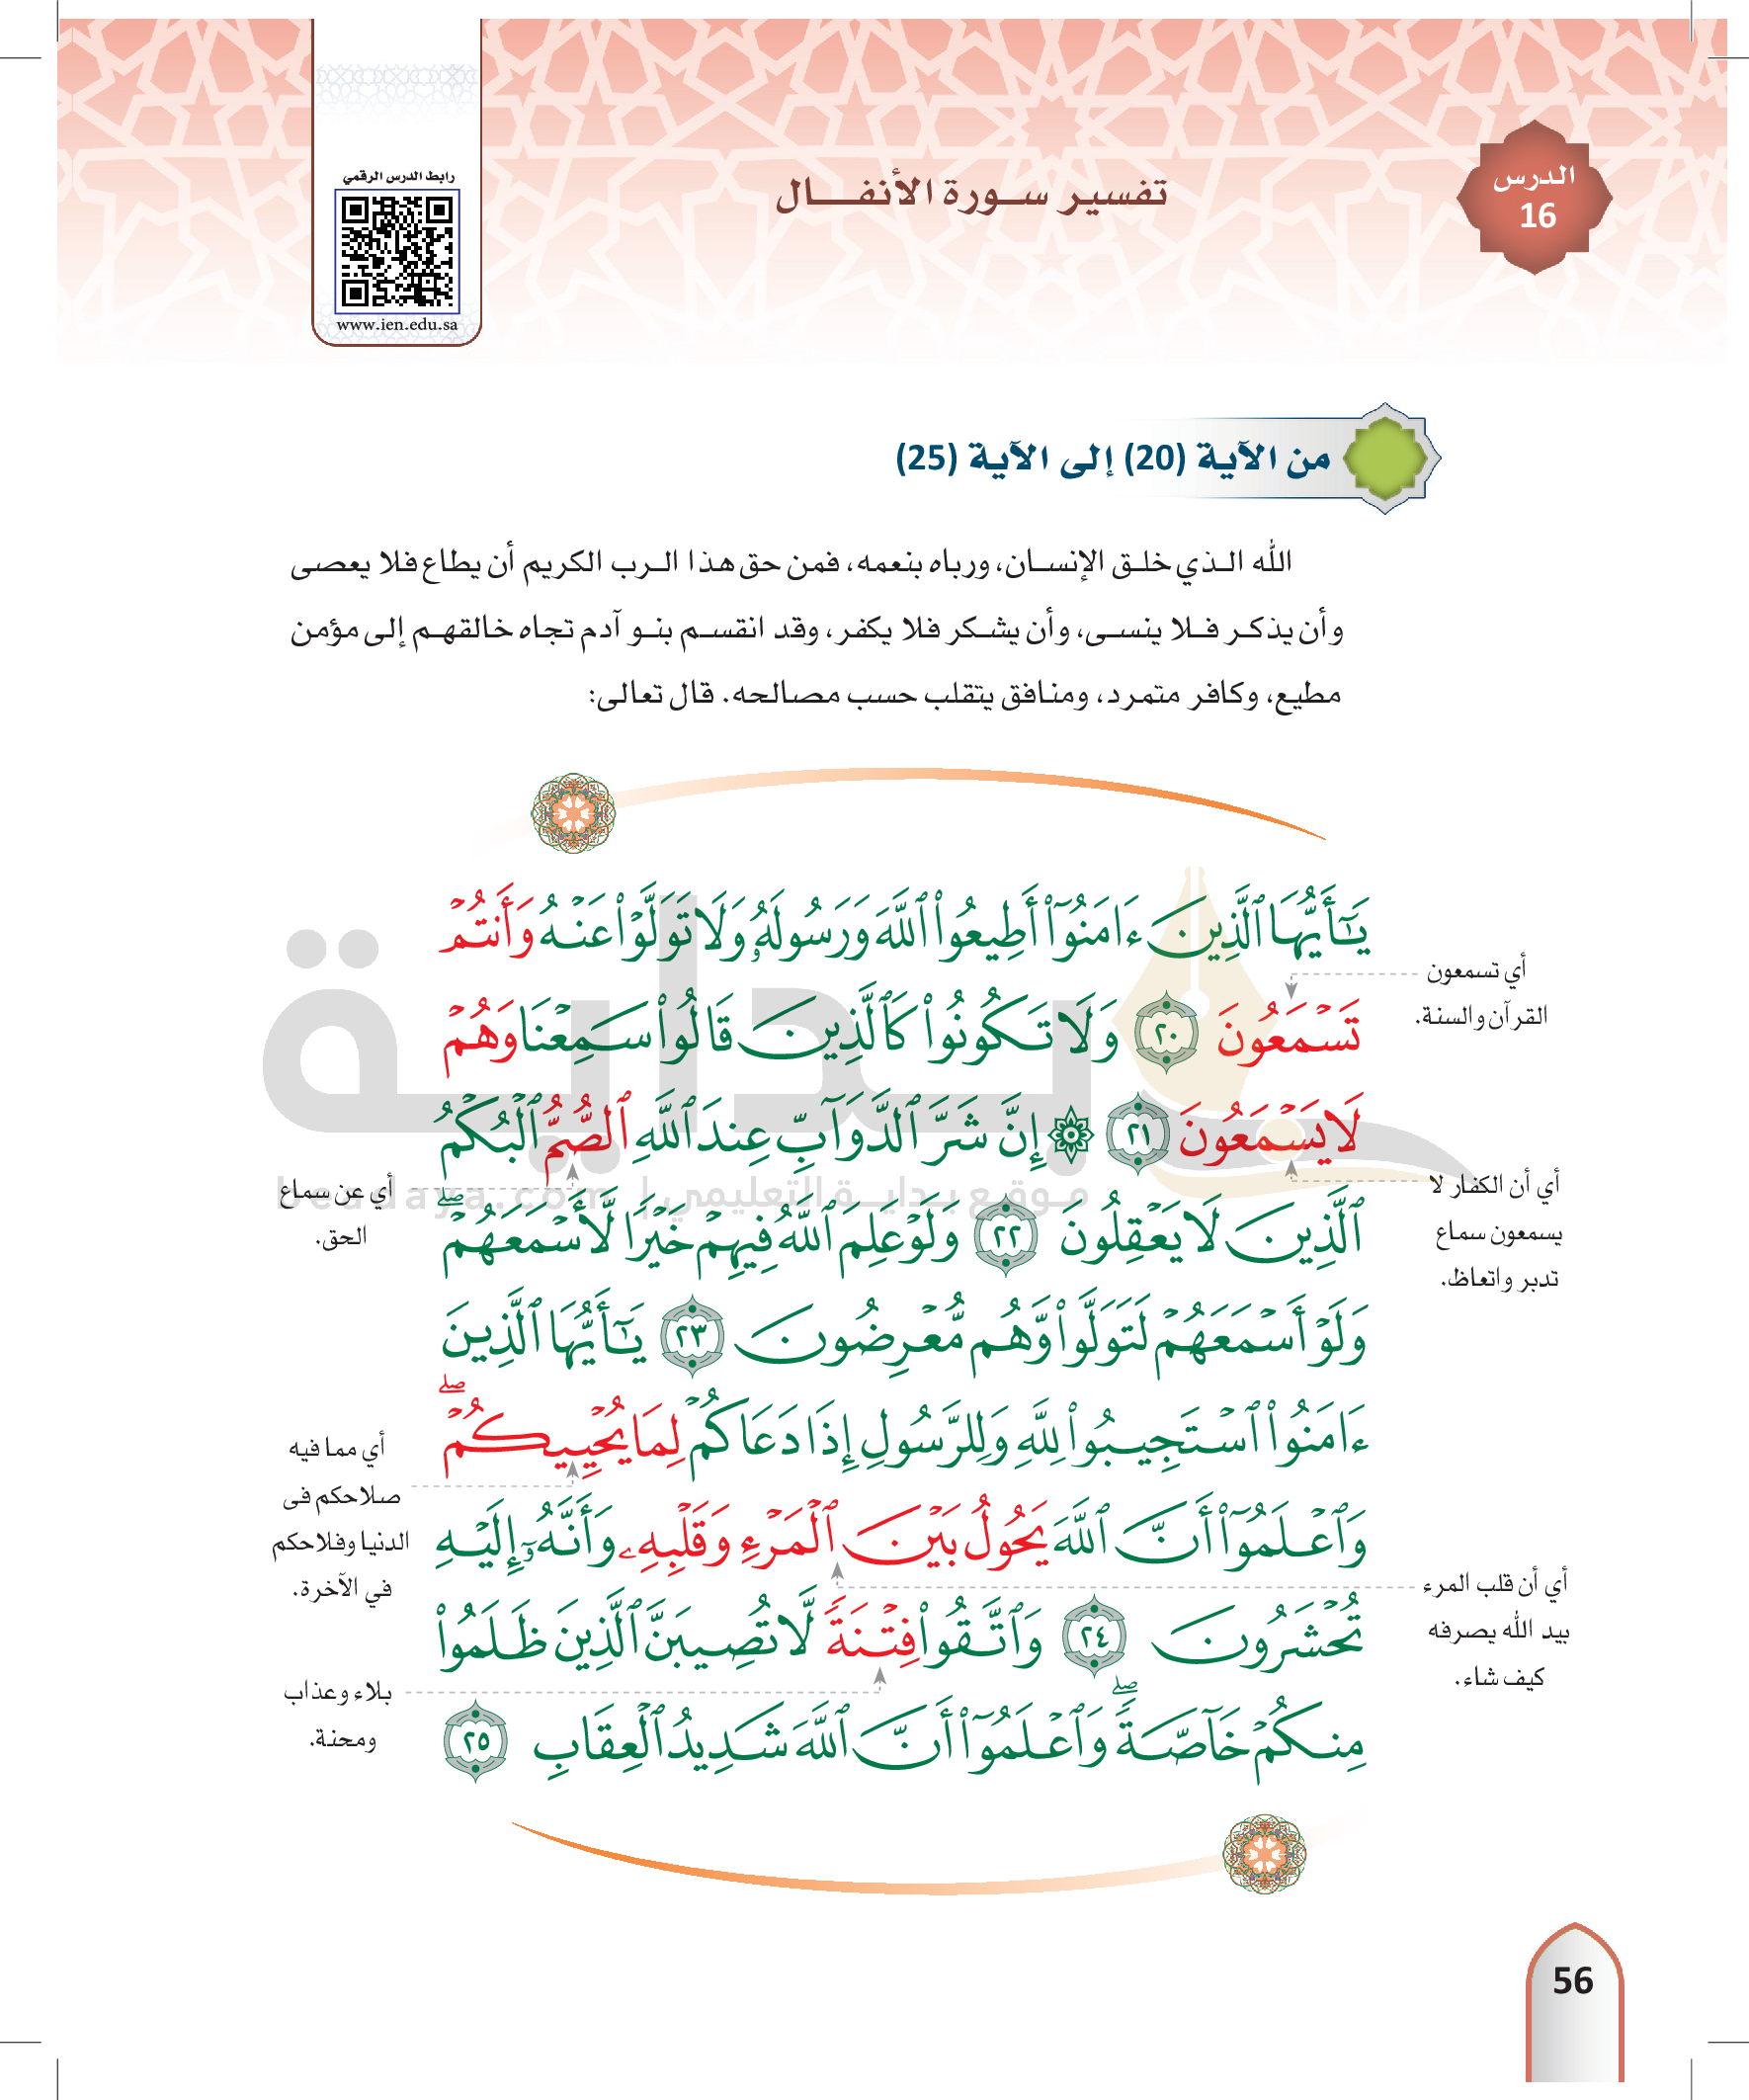 الدرس
16
تفسير سورة الأنفال
رابط الدرس الرقمي
www.ien.edu.sa
من الآية (20) إلى الآية (25)
الله الذي خلق الإنسان، ورباه بنعمه، فمن حق هذا الرب الكريم أن يطاع فلا يعصى
وأن يذكر فلا ينسى، وأن يشكر فلا يكفر، وقد انقسم بنو آدم تجاه خالقهم إلى مؤمن
مطيع، وكافر متمرد، ومنافق يتقلب حسب مصالحه. قال تعالى:
يَٰٓأَيُّهَا ٱلَّذِينَ ءَامَنُوٓا۟ أَطِيعُوا۟ ٱللَّهَ وَرَسُولَهُۥ وَلَا تَوَلَّوْا۟ عَنْهُ وَأَنتُمْ
تَسْمَعُونَ ٢٠ وَلَا تَكُونُوا۟ كَٱلَّذِينَ قَالُوا۟ سَمِعْنَا وَهُمْ
لَا يَسْمَعُونَ ٢١ ۞ إِنَّ شَرَّ ٱلدَّوَآبِّ عِندَ ٱللَّهِ ٱلصُّمُّ ٱلْبُكْمُ
ٱلَّذِينَ لَا يَعْقِلُونَ ٢٢ وَلَوْ عَلِمَ ٱللَّهُ فِيهِمْ خَيْرًا لَّأَسْمَعَهُمْ ۖ
وَلَوْ أَسْمَعَهُمْ لَتَوَلَّوا۟ وَّهُم مُّعْرِضُونَ ٢٣ يَٰٓأَيُّهَا ٱلَّذِينَ
ءَامَنُوا۟ ٱسْتَجِيبُوا۟ لِلَّهِ وَلِلرَّسُولِ إِذَا دَعَاكُمْ لِمَا يُحْيِيكُمْ ۖ
وَٱعْلَمُوٓا۟ أَنَّ ٱللَّهَ يَحُولُ بَيْنَ ٱلْمَرْءِ وَقَلْبِهِۦ وَأَنَّهُۥٓ إِلَيْهِ
تُحْشَرُونَ ٢٤ وَٱتَّقُوا۟ فِتْنَةً لَّا تُصِيبَنَّ ٱلَّذِينَ ظَلَمُوا۟
مِنكُمْ خَآصَّةً ۖ وَٱعْلَمُوٓا۟ أَنَّ ٱللَّهَ شَدِيدُ ٱلْعِقَابِ ٢٥
أي تسمعون
القرآن والسنة.
أي أن الكفار لا
يسمعون سماع
تدبر واتعاظ.
أي عن سماع
الحق.
أي مما فيه
صلاحكم فى
الدنيا وفلاحكم
في الآخرة.
أي أن قلب المرء
بيد الله يصرفه
كيف شاء.
بلاء وعذاب
ومحنة.
بداية
موقع بداية التعليمي | beadaya.com
56